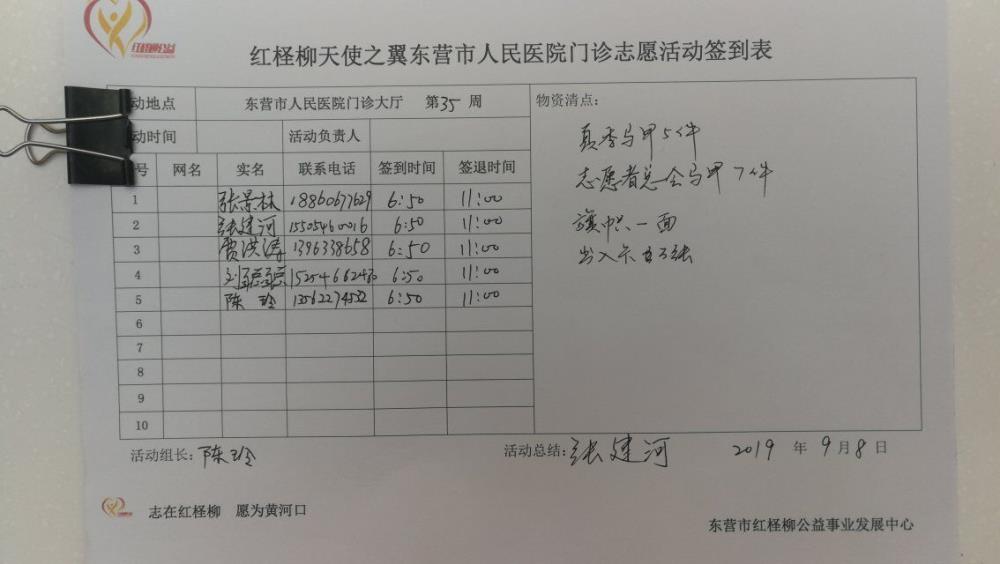 红柽柳公益
红柽柳天使之翼东营市人民医院门诊志愿活动签到表
动地点 东营市人民医院门诊大厅 第35周
动时间 活动负责人
号 网名 实名 联系电话 签到时间 签退时间
1 张景林 18860677629 6:50 11:00
2 张建河 15505460016 6:50 11:00
3 贾洪涛 1396338658 6:50 11:00
4 刘 6:50 11:00
5 陈玲 6:50 11:00
6
7
8
9
10
物资清点:
马甲5件
志愿者总会马甲7件
旗帜一面
出入卡 张
活动组长: 陈玲 活动总结: 张建河 2019年9月8日
志在红柽柳 愿为黄河口
东营市红柽柳公益事业发展中心